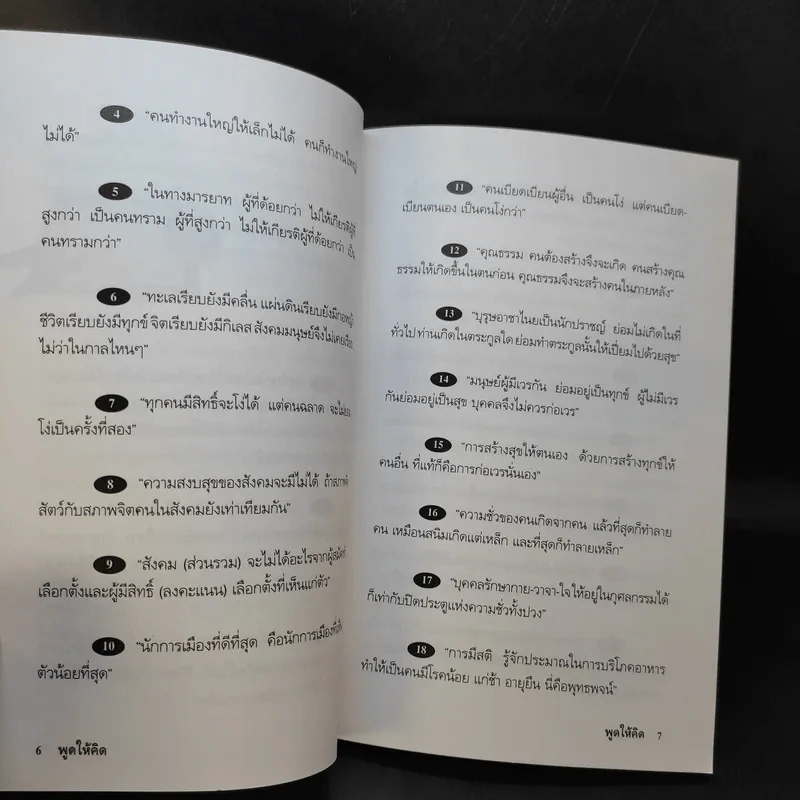 4 "คนทำงานใหญ่ให้เล็กไม่ได้ คนก็ทำงานใหญ่
ไม่ได้"
5 "ในทางมารยาท ผู้ที่ด้อยกว่า ไม่ให้เกียรติผู้ที่
สูงกว่า เป็นคนทราม ผู้ที่สูงกว่า ไม่ให้เกียรติผู้ที่ด้อยกว่า เป็น
คนทรามกว่า"
6 "ทะเลเรียบยังมีคลื่น แผ่นดินเรียบยังมี
ชีวิตเรียบยังมีทุกข์ จิตเรียบยังมีกิเลส สังคมมนุษย์จึงไม่เคยเรียบ
ไม่ว่าในกาลไหนๆ"
7 "ทุกคนมีสิทธิ์จะโง่ได้ แต่คนฉลาด จะไม่ยอม
โง่เป็นครั้งที่สอง"
8 "ความสงบสุขของสังคมจะมีไม่ได้ ถ้าสภาพ
สัตว์กับสภาพจิตคนในสังคมยังเท่าเทียมกัน"
9 "สังคม (ส่วนรวม) จะไม่ได้อะไรจากผู้สมัคร
เลือกตั้งและผู้มีสิทธิ์ (ลงคะแนน) เลือกตั้งที่เห็นแก่ตัว"
10 "นักการเมืองที่ดีที่สุด คือนักการเมืองที่
ตัวน้อยที่สุด"
6 พูดให้คิด
11 "คนเบียดเบียนผู้อื่น เป็นคนโง่ แต่คนเบียด-
เบียนตนเอง เป็นคนโง่กว่า"
12 "คุณธรรม คนต้องสร้างจึงจะเกิด คนสร้างคุณ
ธรรมให้เกิดขึ้นในตนก่อน คุณธรรมจึงจะสร้างคนในภายหลัง"
13 "บุรุษอาชาไนยเป็นนักปราชญ์ ย่อมไม่เกิดในที่
ทั่วไป ท่านเกิดในตระกูลใด ย่อมทำตระกูลนั้นให้เปี่ยมไปด้วยสุข"
14 "มนุษย์ผู้มีเวรกัน ย่อมอยู่เป็นทุกข์ ผู้ไม่มีเวร
กันย่อมอยู่เป็นสุข บุคคลจึงไม่ควรก่อเวร"
15 "การสร้างสุขให้ตนเอง ด้วยการสร้างทุกข์ให้
คนอื่น ที่แท้ก็คือการก่อเวรนั่นเอง"
16 "ความชั่วของคนเกิดจากคน แล้วที่สุดก็ทำลาย
คน เหมือนสนิมเกิดแต่เหล็ก และที่สุดก็ทำลายเหล็ก"
17 "บุคคลรักษากาย-วาจา-ใจ ให้อยู่ในกุศลกรรมได้
ก็เท่ากับปิดประตูแห่งความชั่วทั้งปวง"
18 "การมีสติ รู้จักประมาณในการบริโภคอาหาร
ทำให้เป็นคนมีโรคน้อย แก่ช้า อายุยืน นี่คือพุทธพจน์"
พูดให้คิด 7